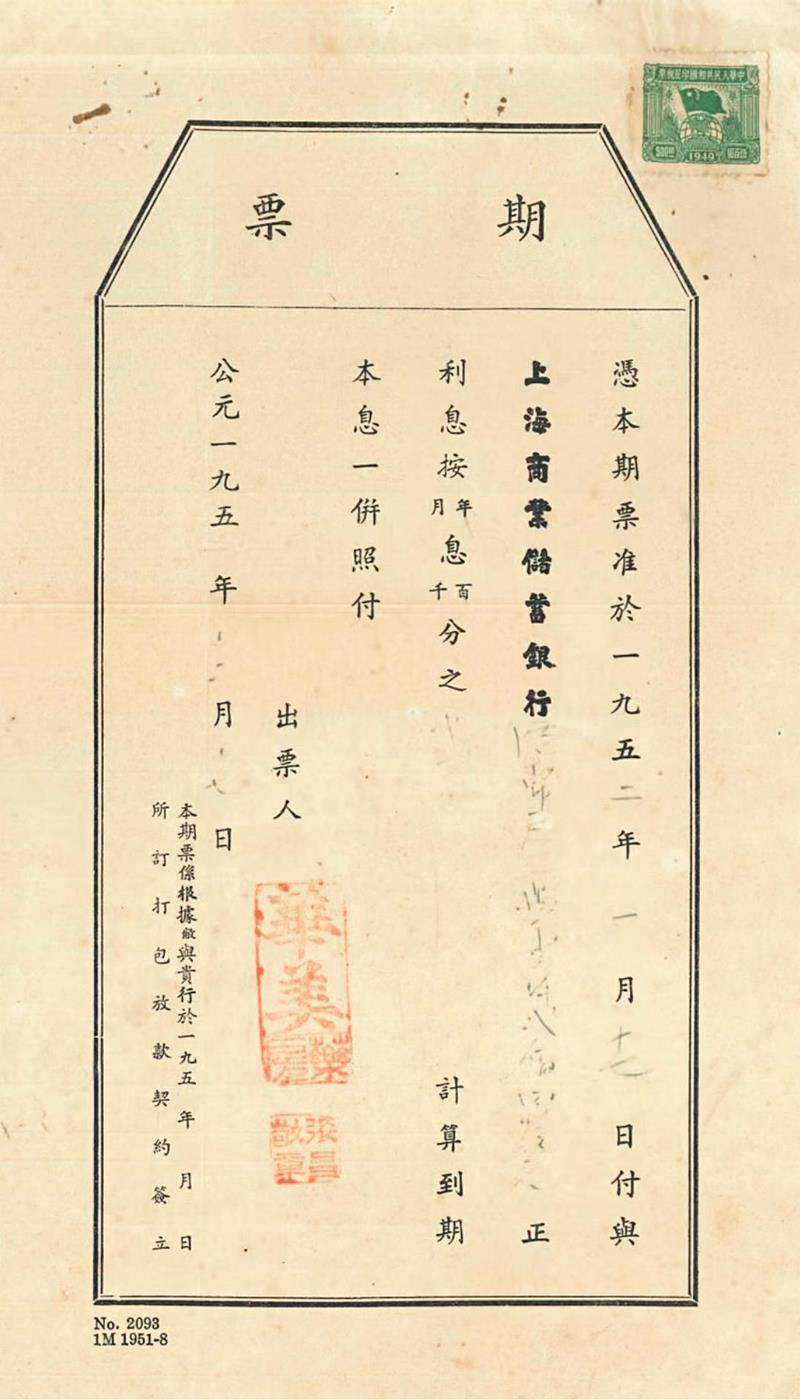 中華人民共和國印花稅票
1949
期票
憑本期票准於一九五二年一月十七日付與
上海商業儲蓄銀行
正
利息按年月息百千分之
計算到期
本息一併照付
出票人
華美藥房
張昌敬章
公元一九五一年十二月十八日
本期票係根據敝與貴行於一九五 年 月 日
所訂打包放款契約簽立
No. 2093
1M 1951-8